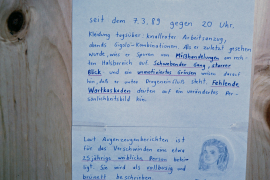 seit dem 7.3.89 gegen 20 Uhr.
Kleidung tagsüber: knallroter Arbeitsanzug,
abends Gigolo-Kombinationen. Als er zuletzt gesehen
wurde, wies er Spuren von Mißhandlungen am rech-
ten Halsbereich auf. Schwebender Gang, starrer
Blick und ein unmotiviertes Grinsen weisen darauf
hin, daß er unter Drogeneinfluß steht. Fehlende
deuten auf ein verändertes Per-
sönlichkeitsbild hin.
Laut Augenzeugenberichten ist
für das Verschwinden eine etwa
25 jährige weibliche Person
Sie wird als vollbusig und
brünett beschrieben.